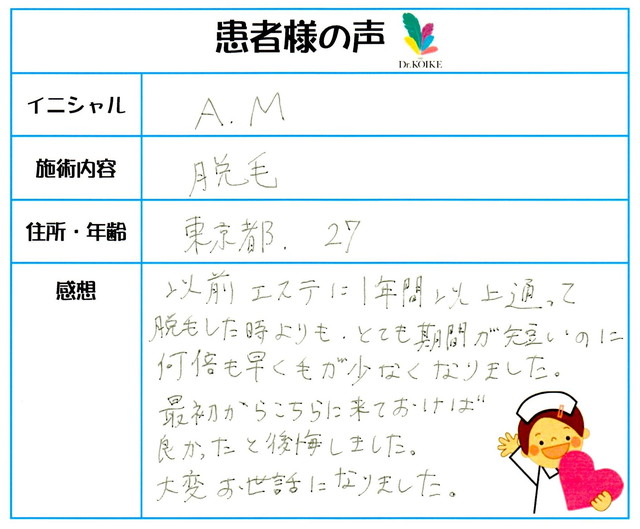 患者様の声
Dr.KOIKE
イニシャル
A.M
施術内容
脱毛
住所・年齢
東京都. 27
感想
以前エステに1年間以上通って
脱毛した時よりも、とても期間が短いのに
何倍も早く毛が少なくなりました。
最初からこちらに来ておけば
良かったと後悔しました。
大変お世話になりました。